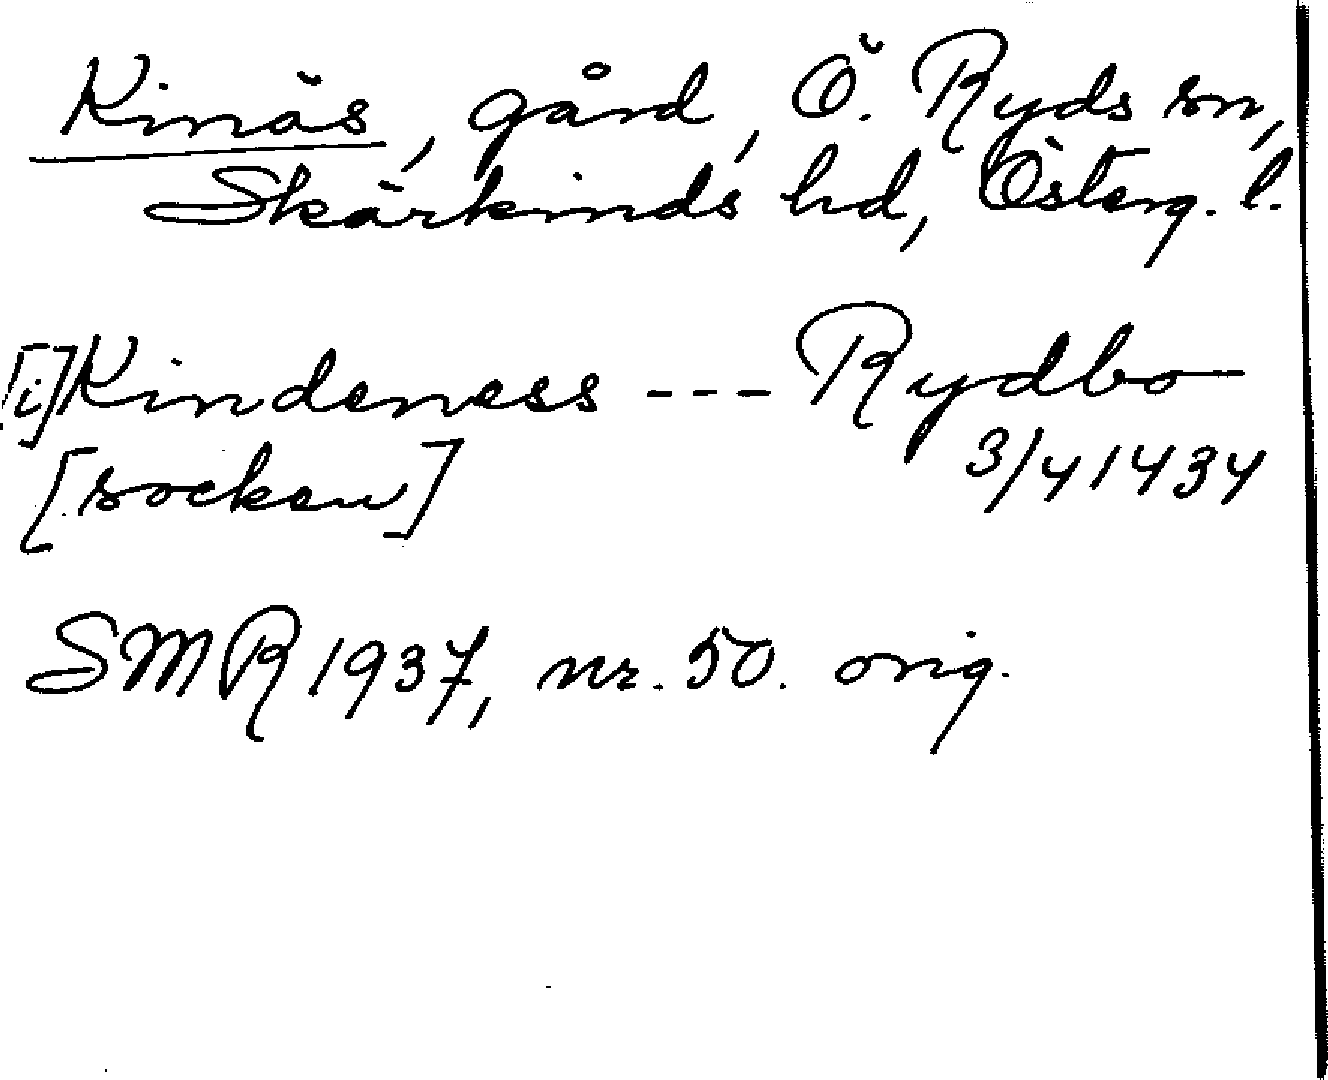 Kinäs, gård, Ö. Ryds sn,
Skärkinds hd, Österg. l.
[i] Kindeness --- Rydbo
[socken] 3/4 1434
SMR 1937, nr. 50. orig.